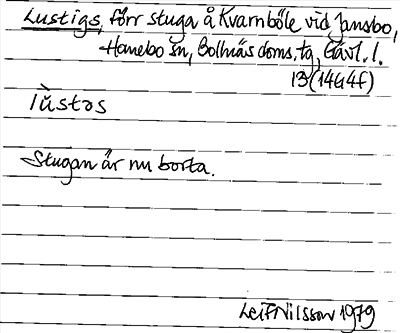 Lustigs, förr stuga å Kvarnböle vid Jansbo,
Hanebo sn, Bollnäs doms. tg, Gävl. l.
13 (14G4f)
lùstəs
Stugan är nu borta.
Leif Nilsson 1979